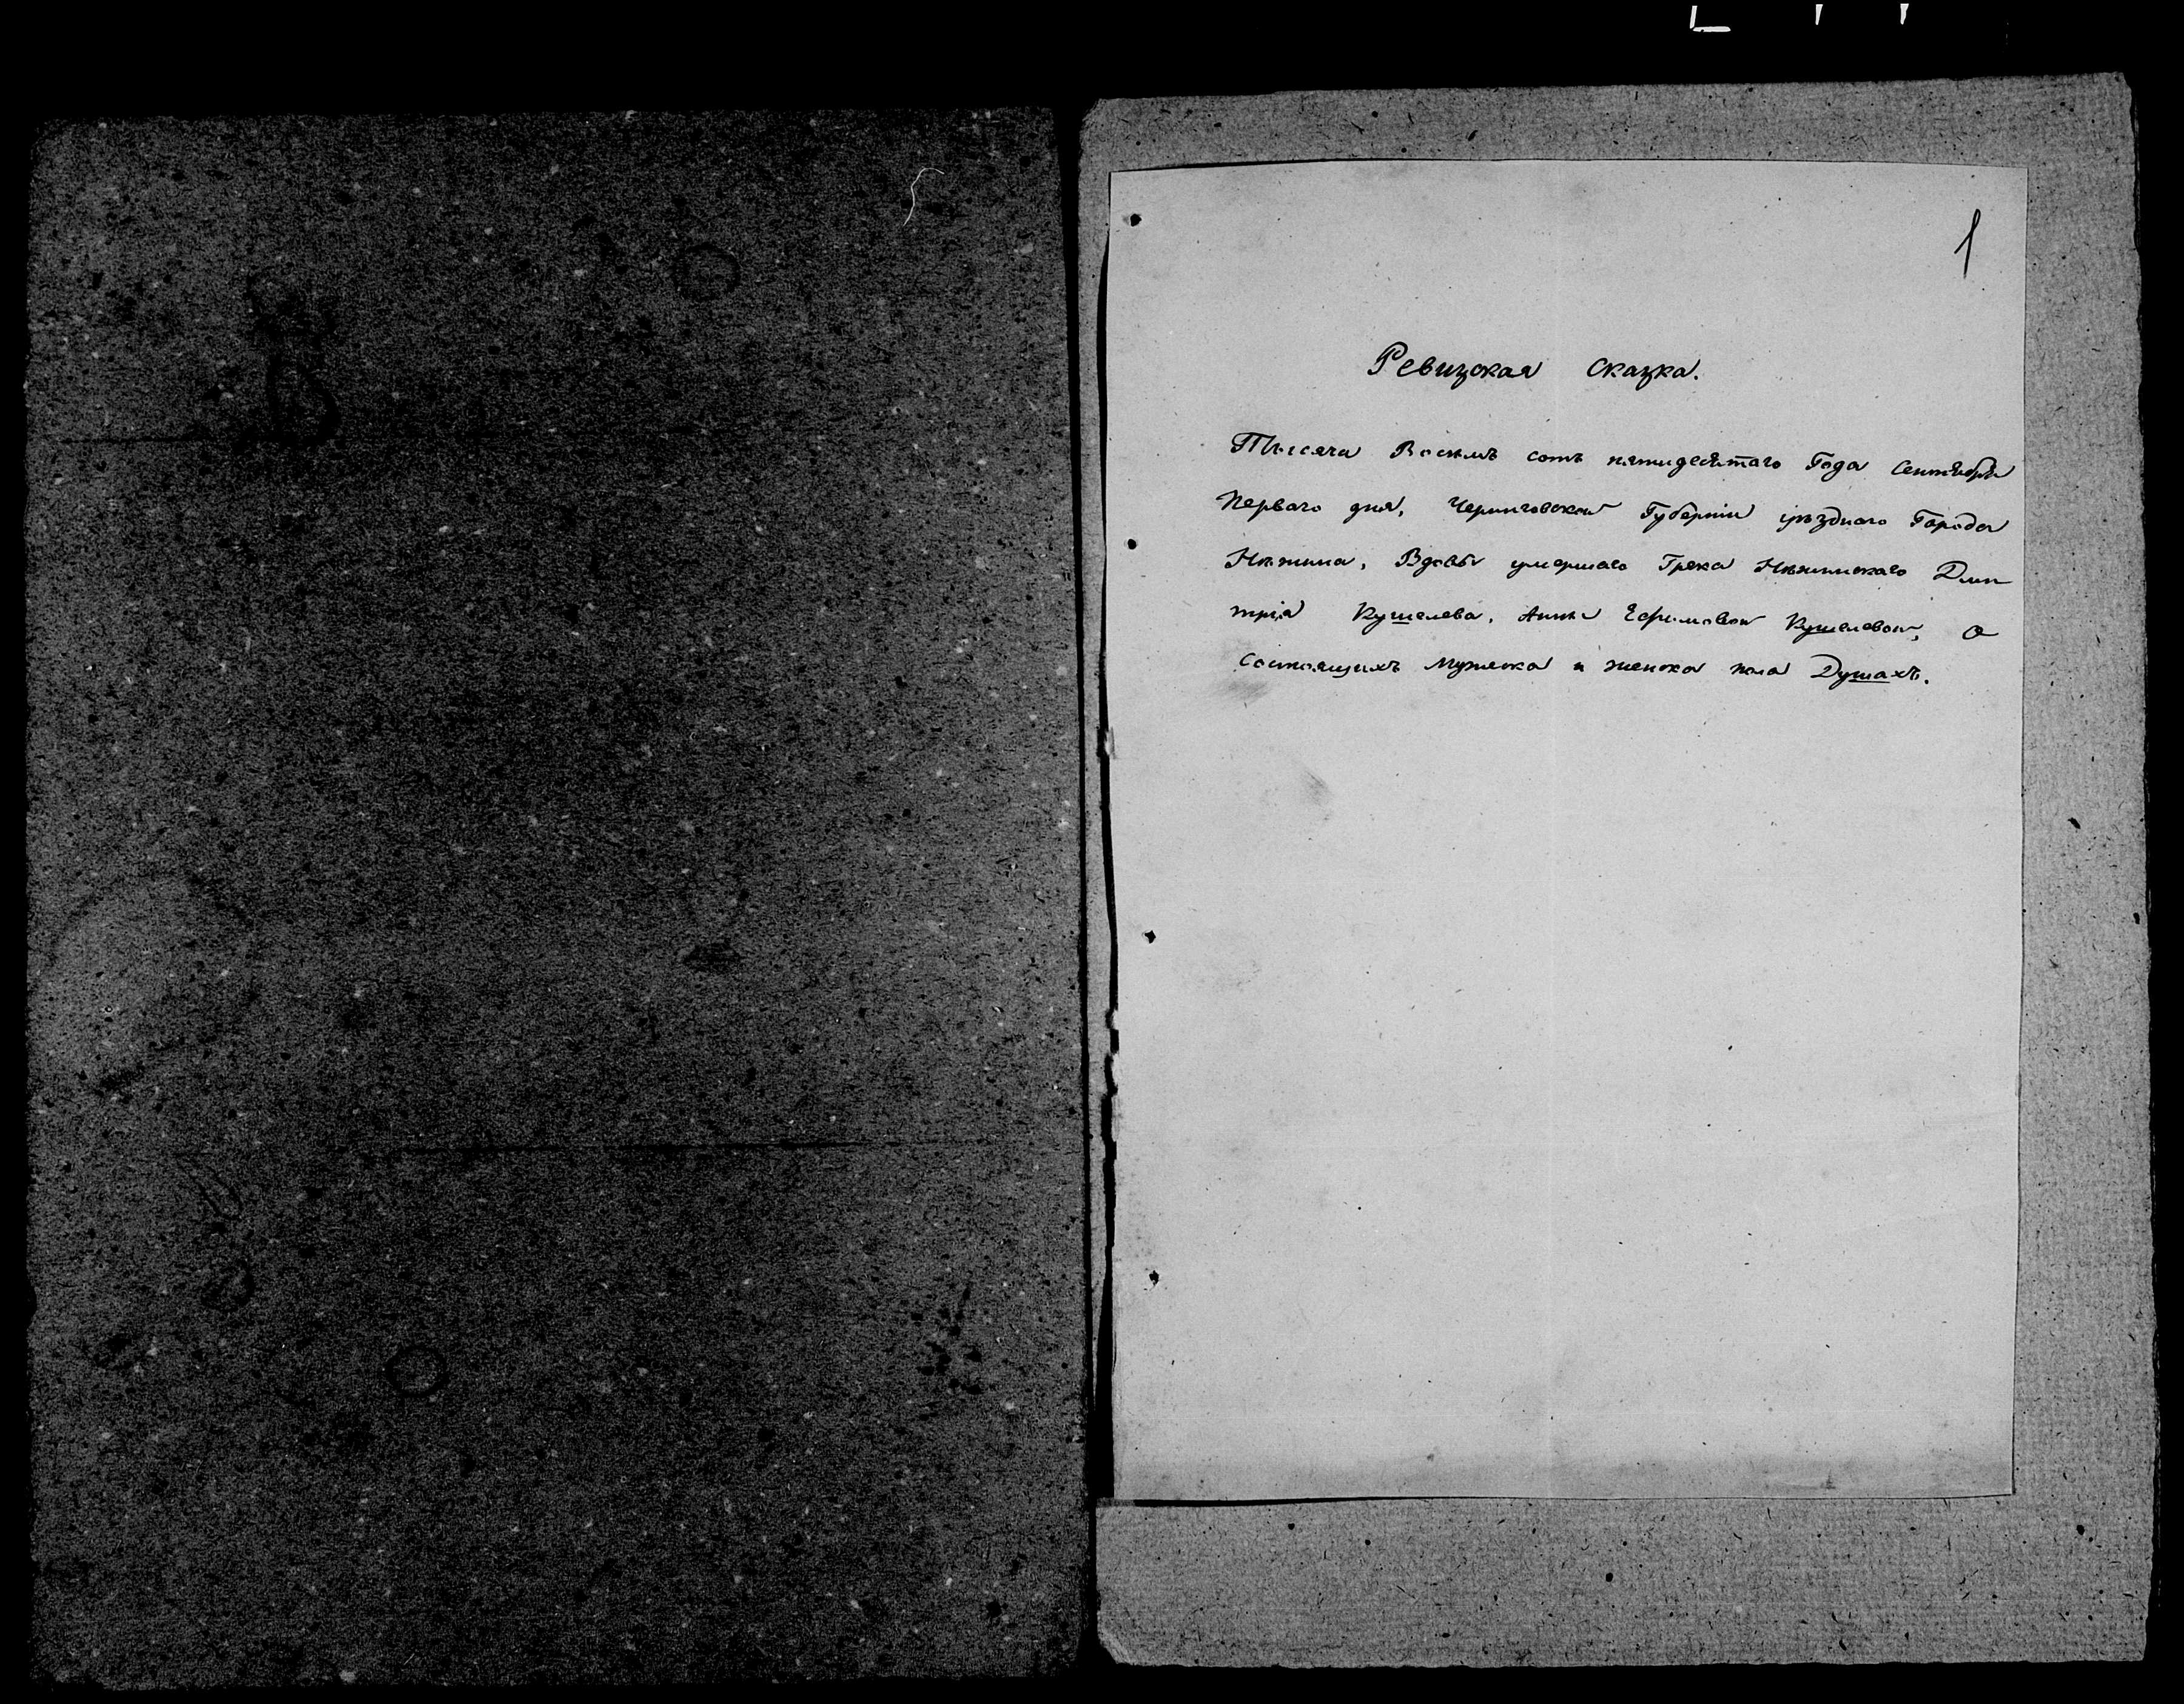 1
Ревизская Сказка.
Тысяча Восемъ сотъ пятидесятаго Года Сентября
Перваго дня, Черниговской Губерніи уѣзднаго Города
Нѣжина, Вдовы умершаго Грека Нѣжинскаго Дми
трія Кушелева, Анны Ефимовой Кушелевой, о
состоящихъ мужеска и женска пола Душахъ.